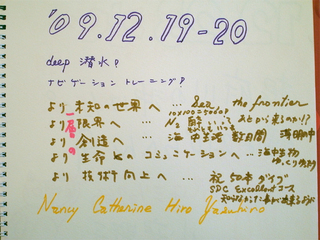 '09.12.19-20
deep 潜水?
ナビゲーション トレーニング?
より 未知の世界へ … Sea the frontier
10×100=5000?
より一層の 限界へ … N₂
より 創造へ … 海中生活 数日間
より 生命との コミュニケーションへ … 海中生物 ゆっくり
より 技術向上へ … 祝 50本 ダイブ
SDC Excellent コース
Nancy Catherine Hiro Yasuhiro